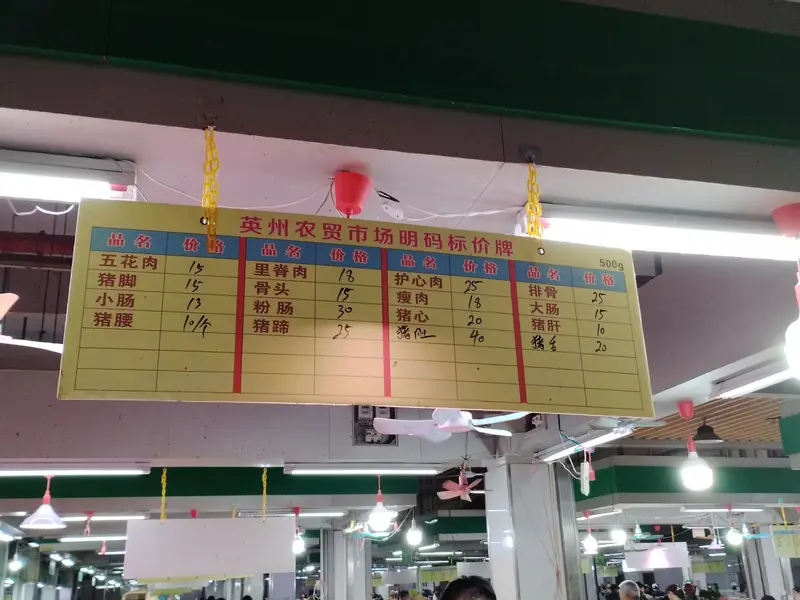 英州农贸市场明码标价牌
500g
品名 价格 品名 价格 品名 价格 品名 价格
五花肉 15 里脊肉 18 护心肉 25 排骨 25
猪脚 15 骨头 15 瘦肉 18 大肠 15
小肠 13 粉肠 30 猪心 20 猪肝 10
猪腰 10/个 猪蹄 25 猪肚 40 猪舌 20